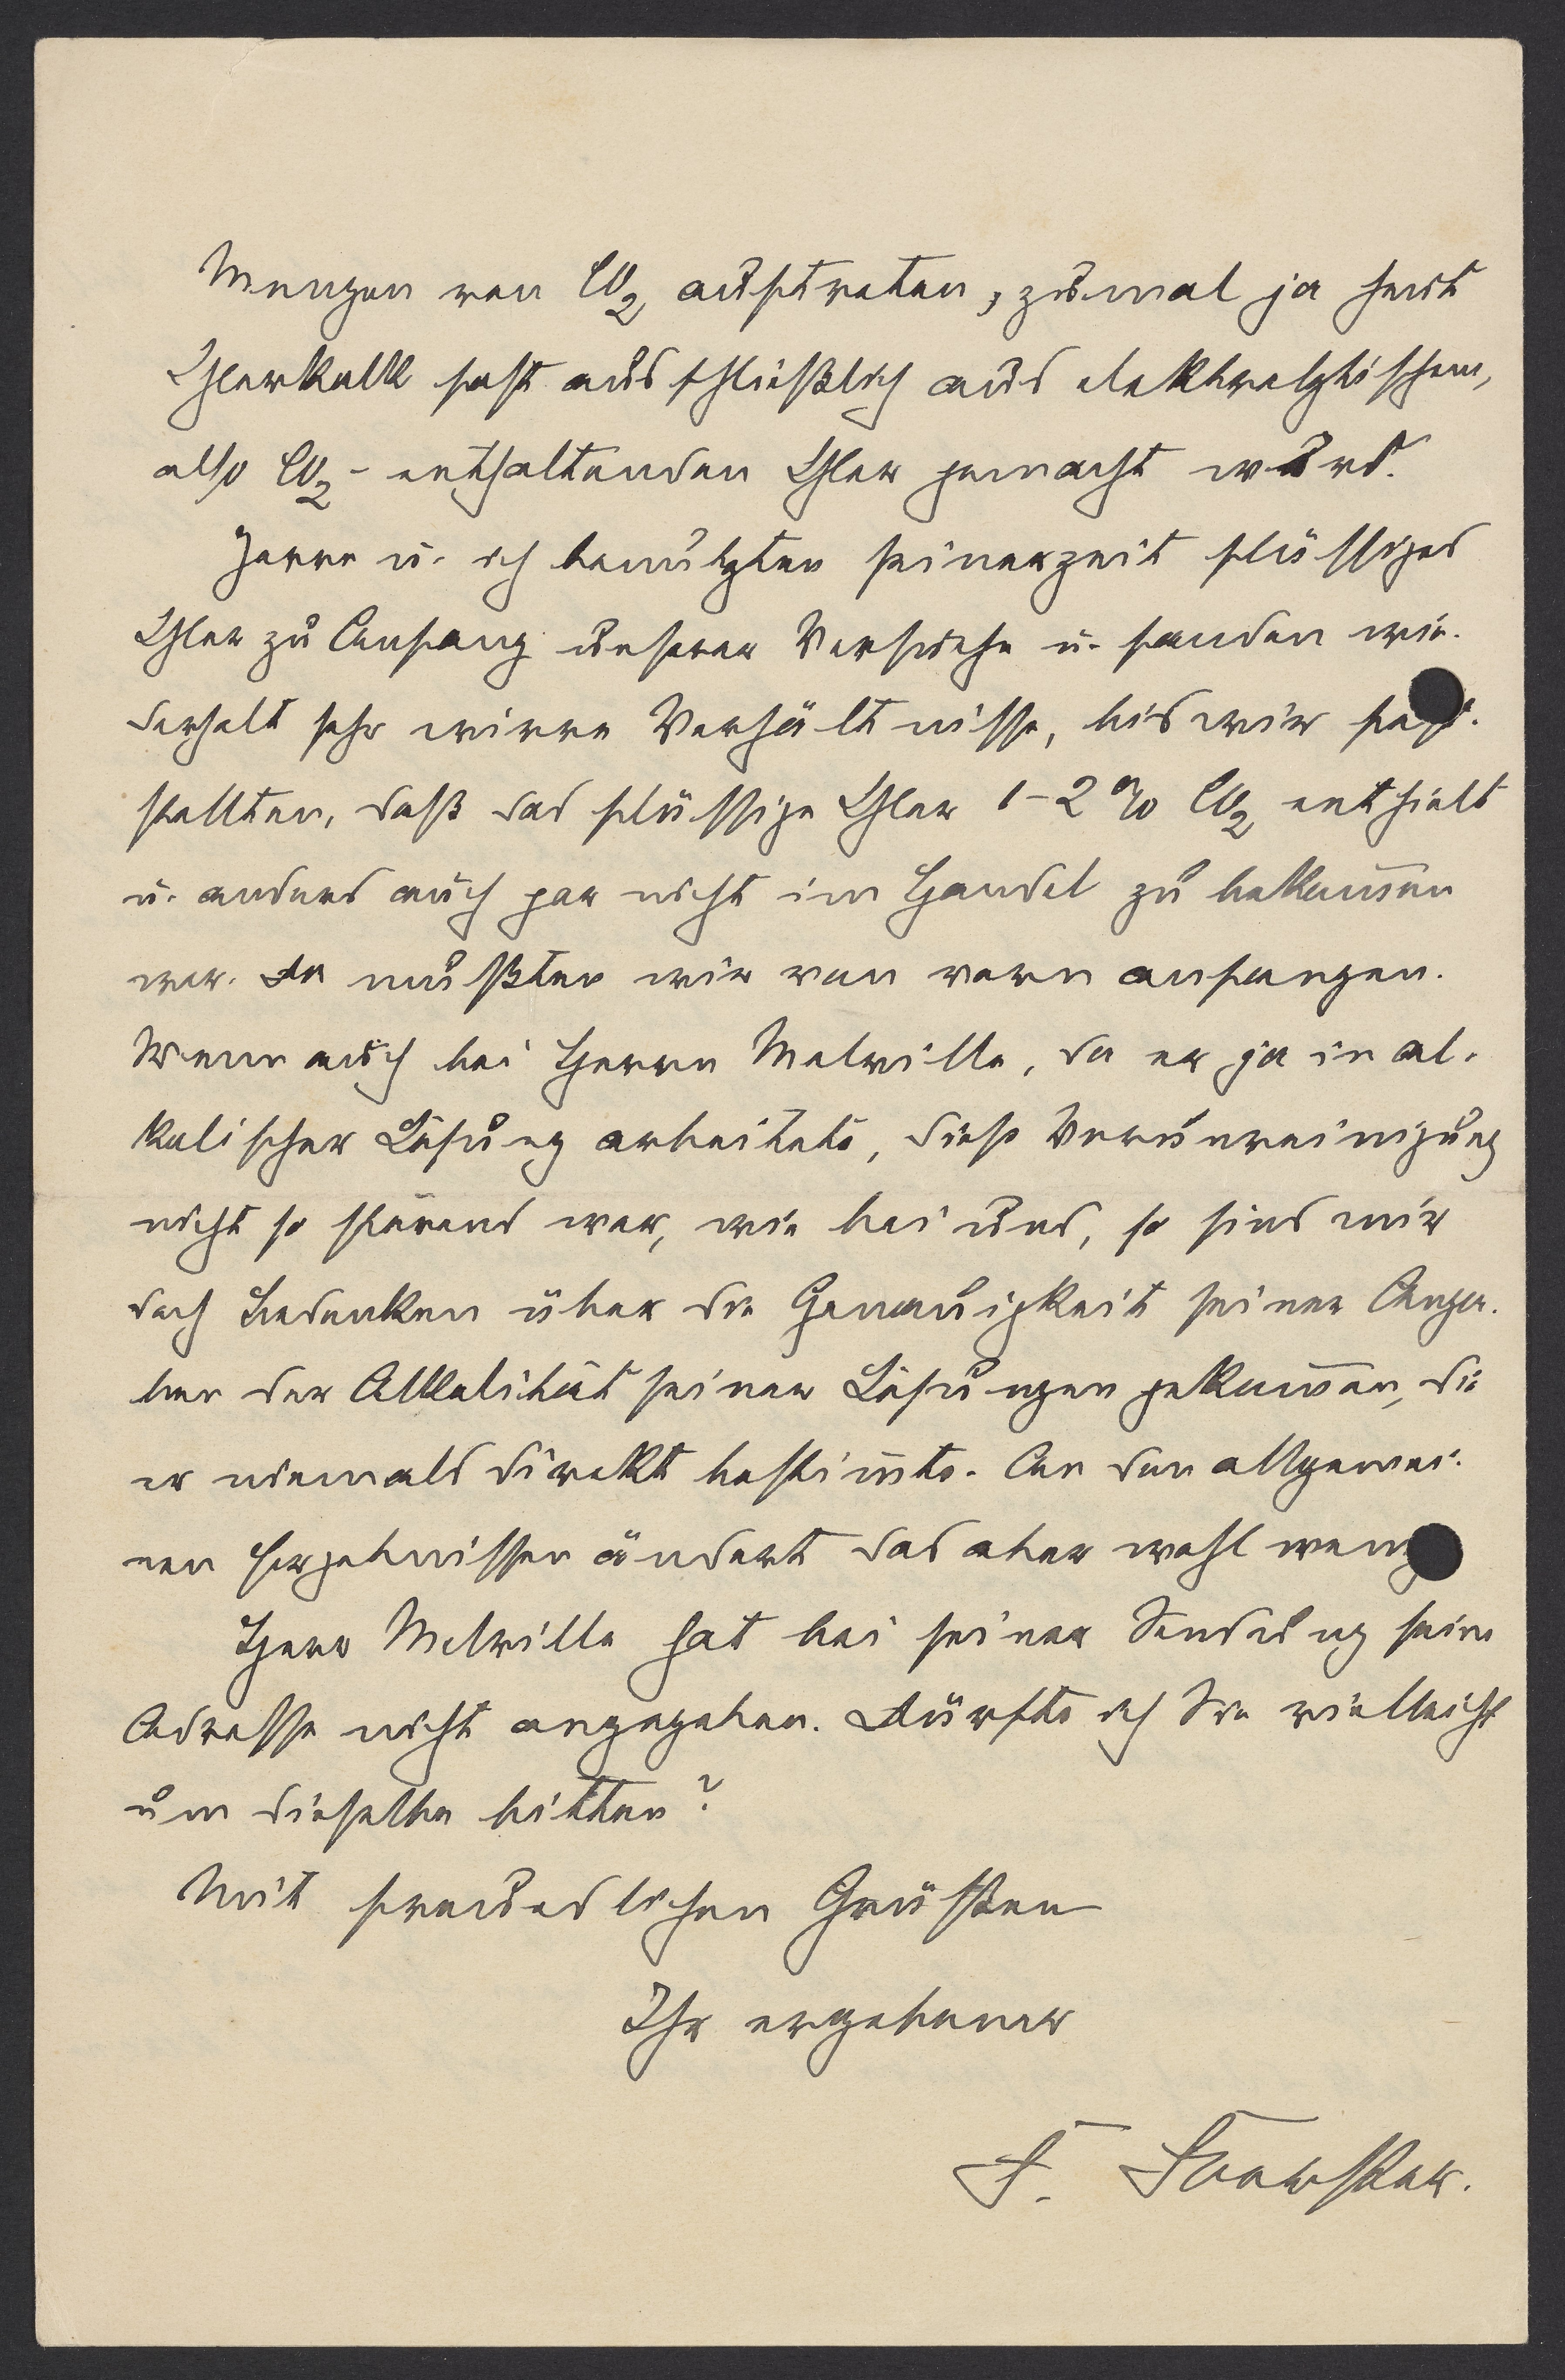 Mengen von CO2 auftreten, zumal ja heut
Chlorkalk fast ausschließlich aus elektrolytischem,
also CO2-enthaltenden Chlor gemacht wird.
Jorre u. ich benützten seinerzeit flüssiges
Chlor zu Anfang unserer Versuche u. fanden wie-
derholt sehr wirre Verhältnisse, bis wir fest-
stellten, daß das flüssige Chlor 1-2% CO2 enthielt
u. anders auch gar nicht im Handel zu bekommen
war. Da mußten wir von vorn anfangen.
Wenn auch bei Herrn Melville, da er ja in al-
kalischer Lösung arbeitete, diese Verunreinigung
nicht so störend war, wie bei uns, so sind mir
doch Bedenken über die Genauigkeit seiner Anga-
ben der Alkalität seiner Lösungen gekommen, die
er niemals direkt bestimmte. An den allgemei-
nen Ergebnissen ändert das aber wohl wenig
Herr Melville hat bei seiner Sendung seine
Adresse nicht angegeben. Dürfte ich Sie vielleicht
um dieselbe bitten?
Mit freundlichen Grüßen
Ihr ergebener
F. Foerster.